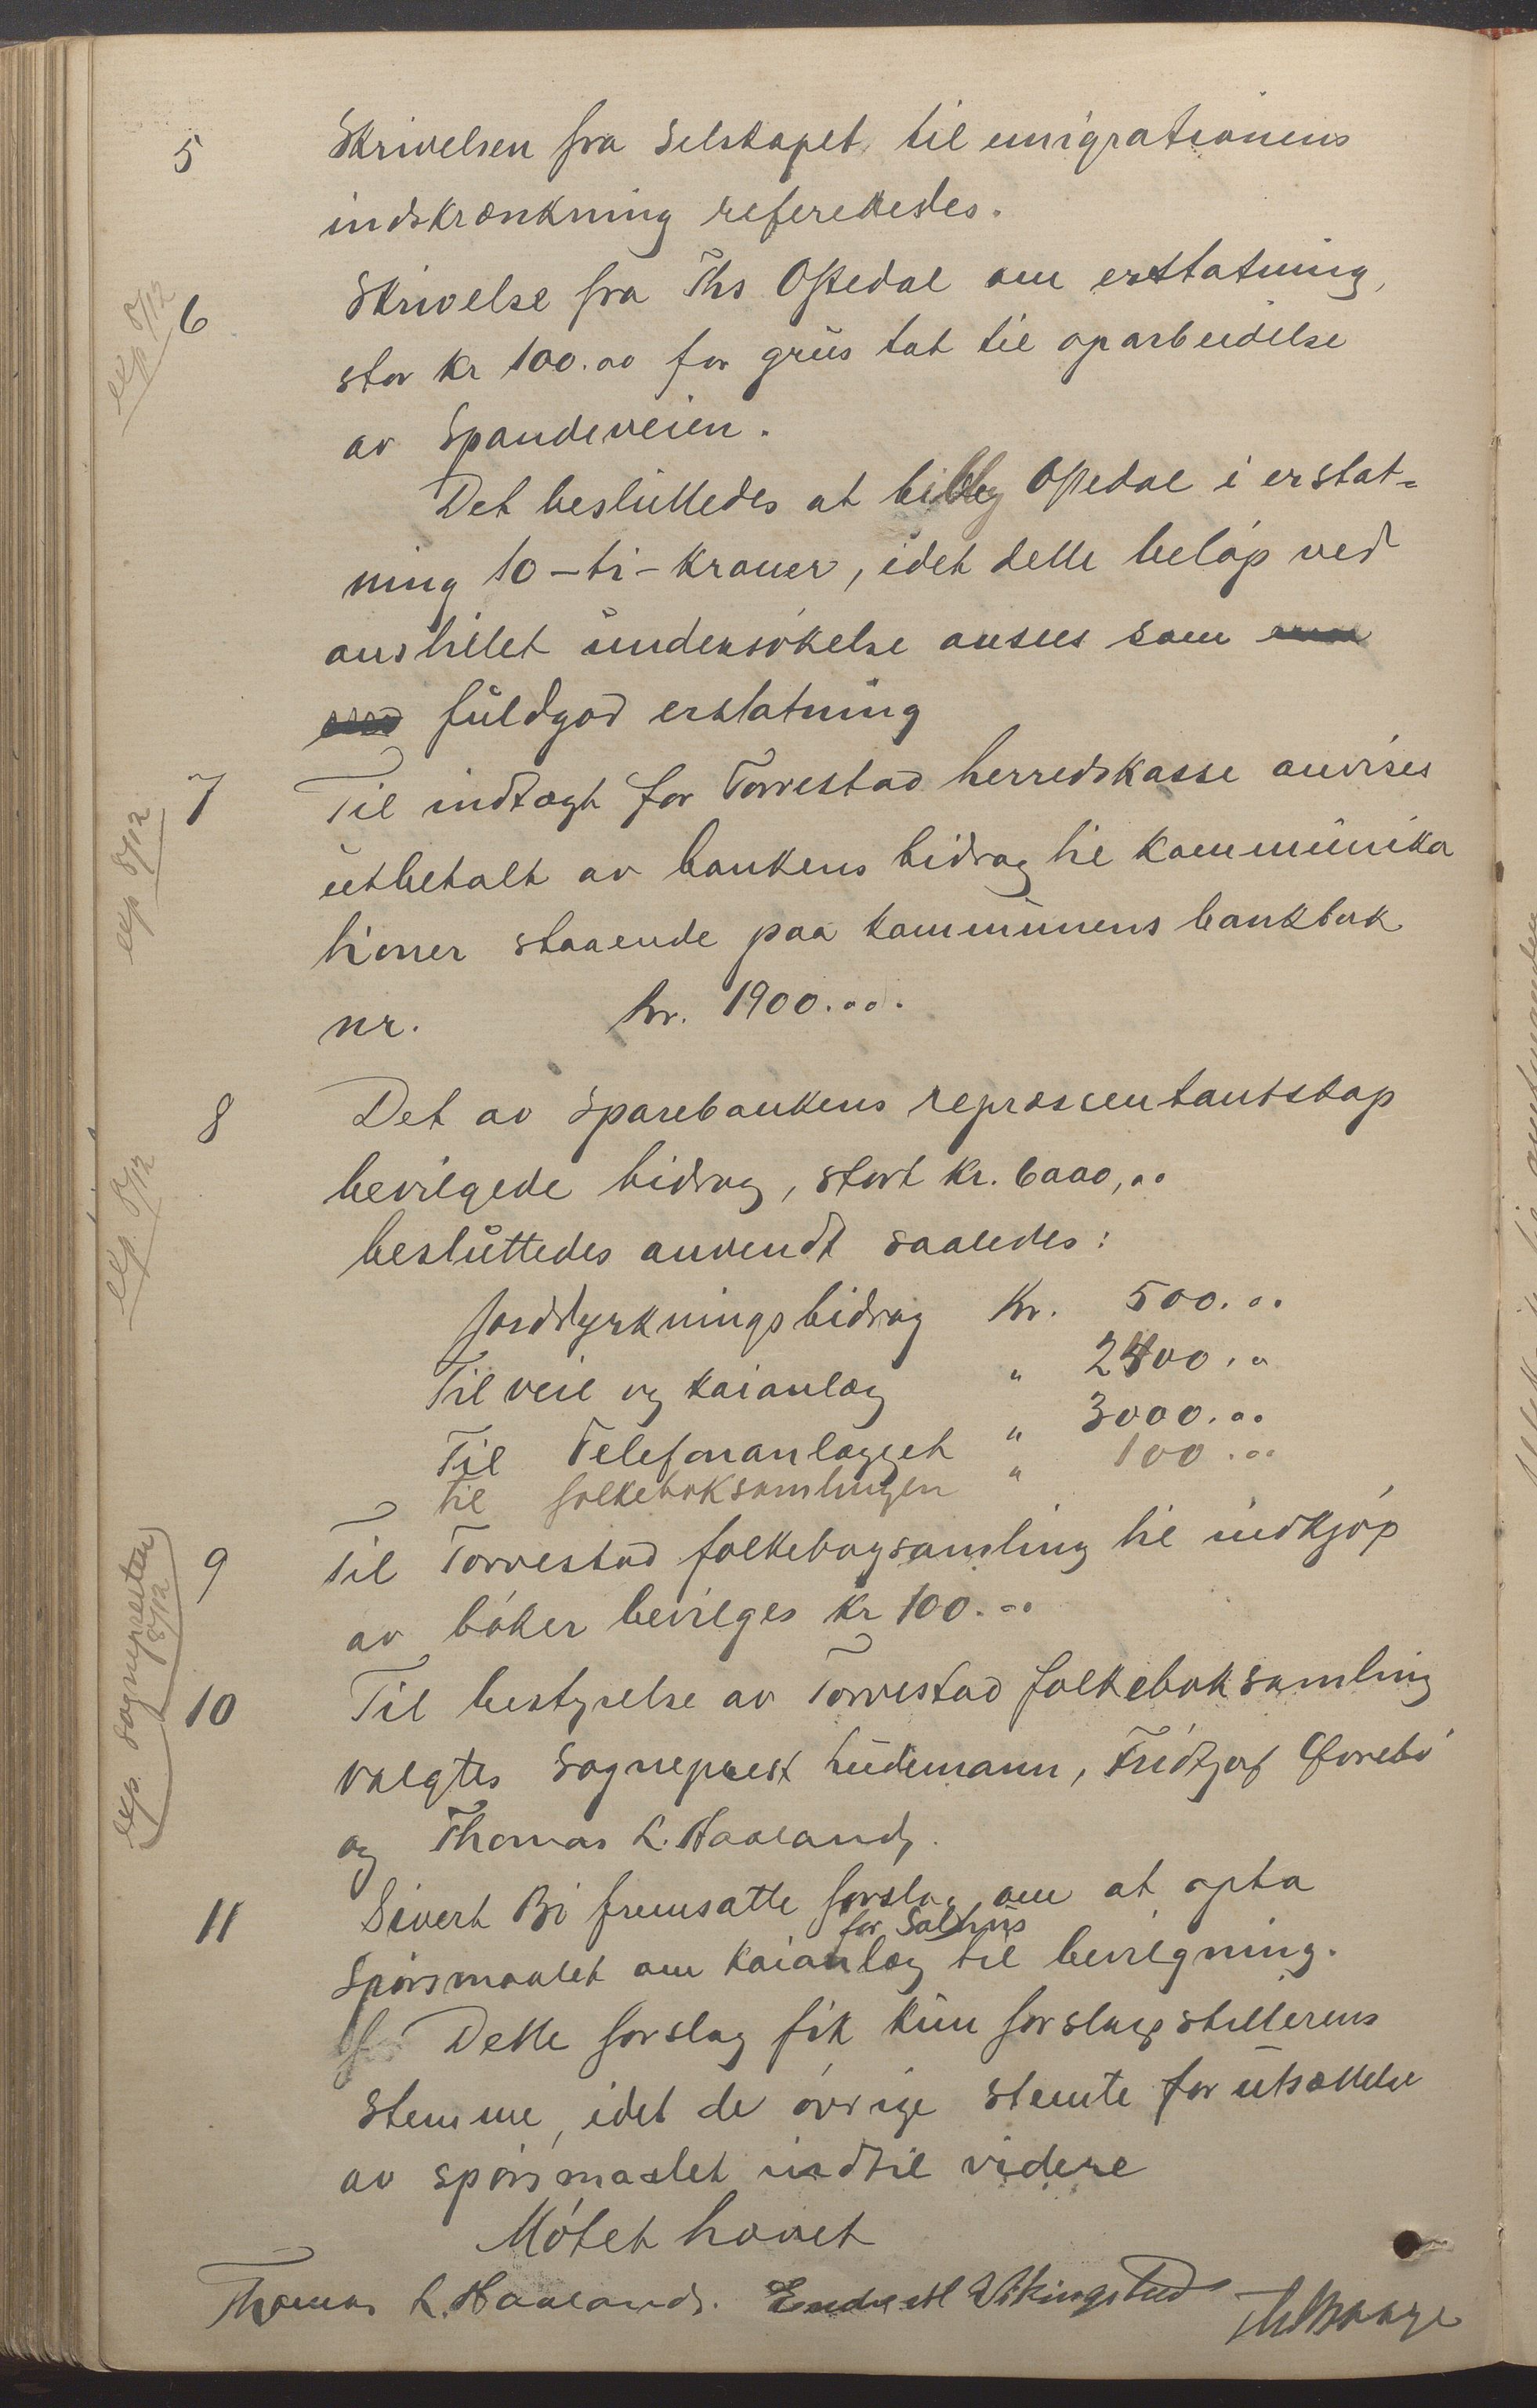 5 Skrivelsen fra Selskapet til emigrationens
indskrænkning refereredes.
exp 8/12
6 Skrivelse fra Ths Opedal om erstatning,
stor kr 100.00 for grus tat til oparbeidelse
av Spandeveien.
Det besluttedes at Opedal i erstat-
ning 10-ti-kroner, idet dette beløp ved
anstillet undersøkelse ansees som
fuldgod erstatning
exp 8/12
7 Til indtægt for Torvestad herredskasse anvises
utbetalt av bankens bidrag til kommunika
tioner staaende paa kommunens bankbok
nr. kr. 1900.00.
exp. 8/12
8 Det av Sparebankens repræsentantskap
bevilgede bidrag, stort kr. 6000,00
besluttedes anvendt saaledes:
Jorddyrkningsbidrag Kr. 500.00
Til veie og kaianlæg " 2400.00
Til Telefonanlægget " 3000.00
til folkeboksamlingen " 100.00
exp. sognepresten 8/12
9 Til Torvestad folkebogsamling til indkjøp
av bøker bevilges kr 100.00
10 Til bestyrelse av Torvestad folkeboksamling
valgtes Sogneprest Lüdemann, Fridtjof Førebø
og Thomas L. Haaland.
11 Sivert Bø fremsatte forslag om at opta
for Salhus
Spørsmaalet om kaianlæg til bevilgning.
Dette forslag fik kun forslagsstillerens
stemme, idet de øvrige stemte for utsættelse
av spørsmaalet indtil videre
Møtet hævet
Thomas L. Haaland. Endre H Vikingstad